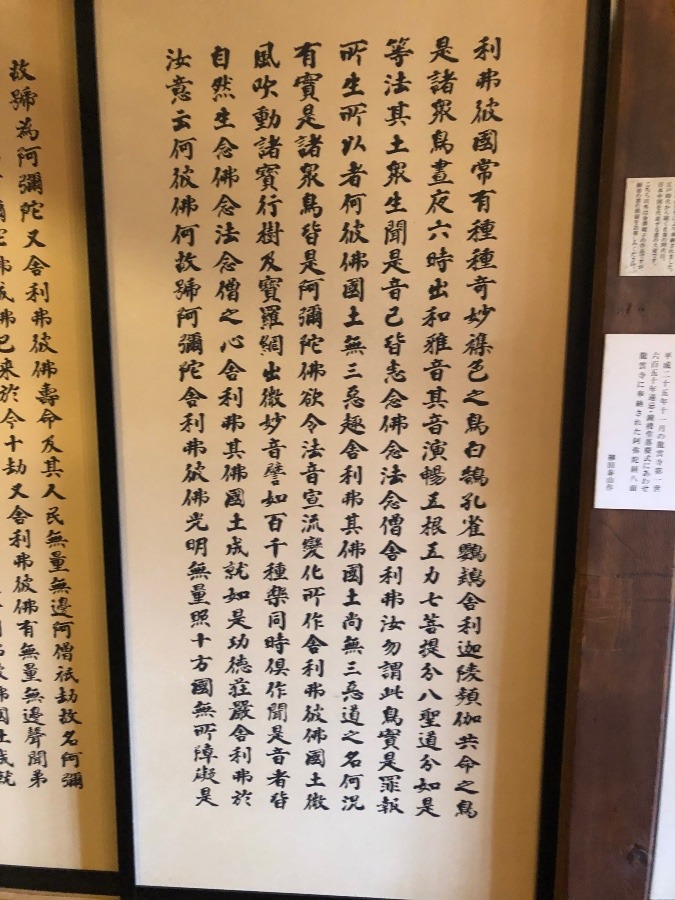 利弗彼國常有種種奇妙襍色之鳥白鵠孔雀鸚鵡舍利迦陵頻伽共命之鳥
是諸衆鳥晝夜六時出和雅音其音演暢五根五力七菩提分八聖道分如是
等法其土衆生聞是音已皆悉念佛念法念僧舍利弗汝勿謂此鳥實是罪報
所生所以者何彼佛國土無三惡趣舍利弗其佛國土尚無三惡道之名何況
有實是諸衆鳥皆是阿彌陀佛欲令法音宣流變化所作舍利弗彼佛國土微
風吹動諸寶行樹及寶羅網出微妙音譬如百千種樂同時俱作聞是音者皆
自然生念佛念法念僧之心舍利弗其佛國土成就如是功德莊嚴舍利弗於
汝意云何彼佛何故號阿彌陀舍利弗彼佛光明無量照十方國無所障礙是
故號為阿彌陀又舍利弗彼佛壽命及其人民無量無邊阿僧祇劫故名阿彌
佛成佛已来於今十劫又舍利弗彼佛有無量無邊聲聞弟
佛國土成就
平成二十五年十一月の龍雲寺第一世
六百五十年遠忌・
龍雲寺に奉納された阿弥陀経八面